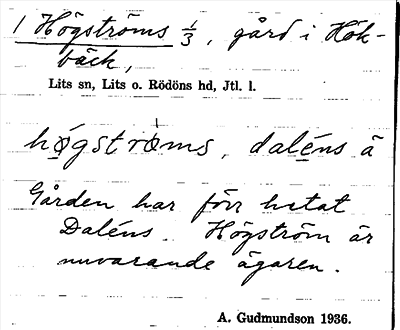 1 Högströms 1/3, gård i Hök-
bäck,
Lits sn, Lits o. Rödöns hd, Jtl. l.
högströms, daléns ä
Gården har förr hetat
Daléns. Högström är
nuvarande ägaren.
A. Gudmundson 1936.